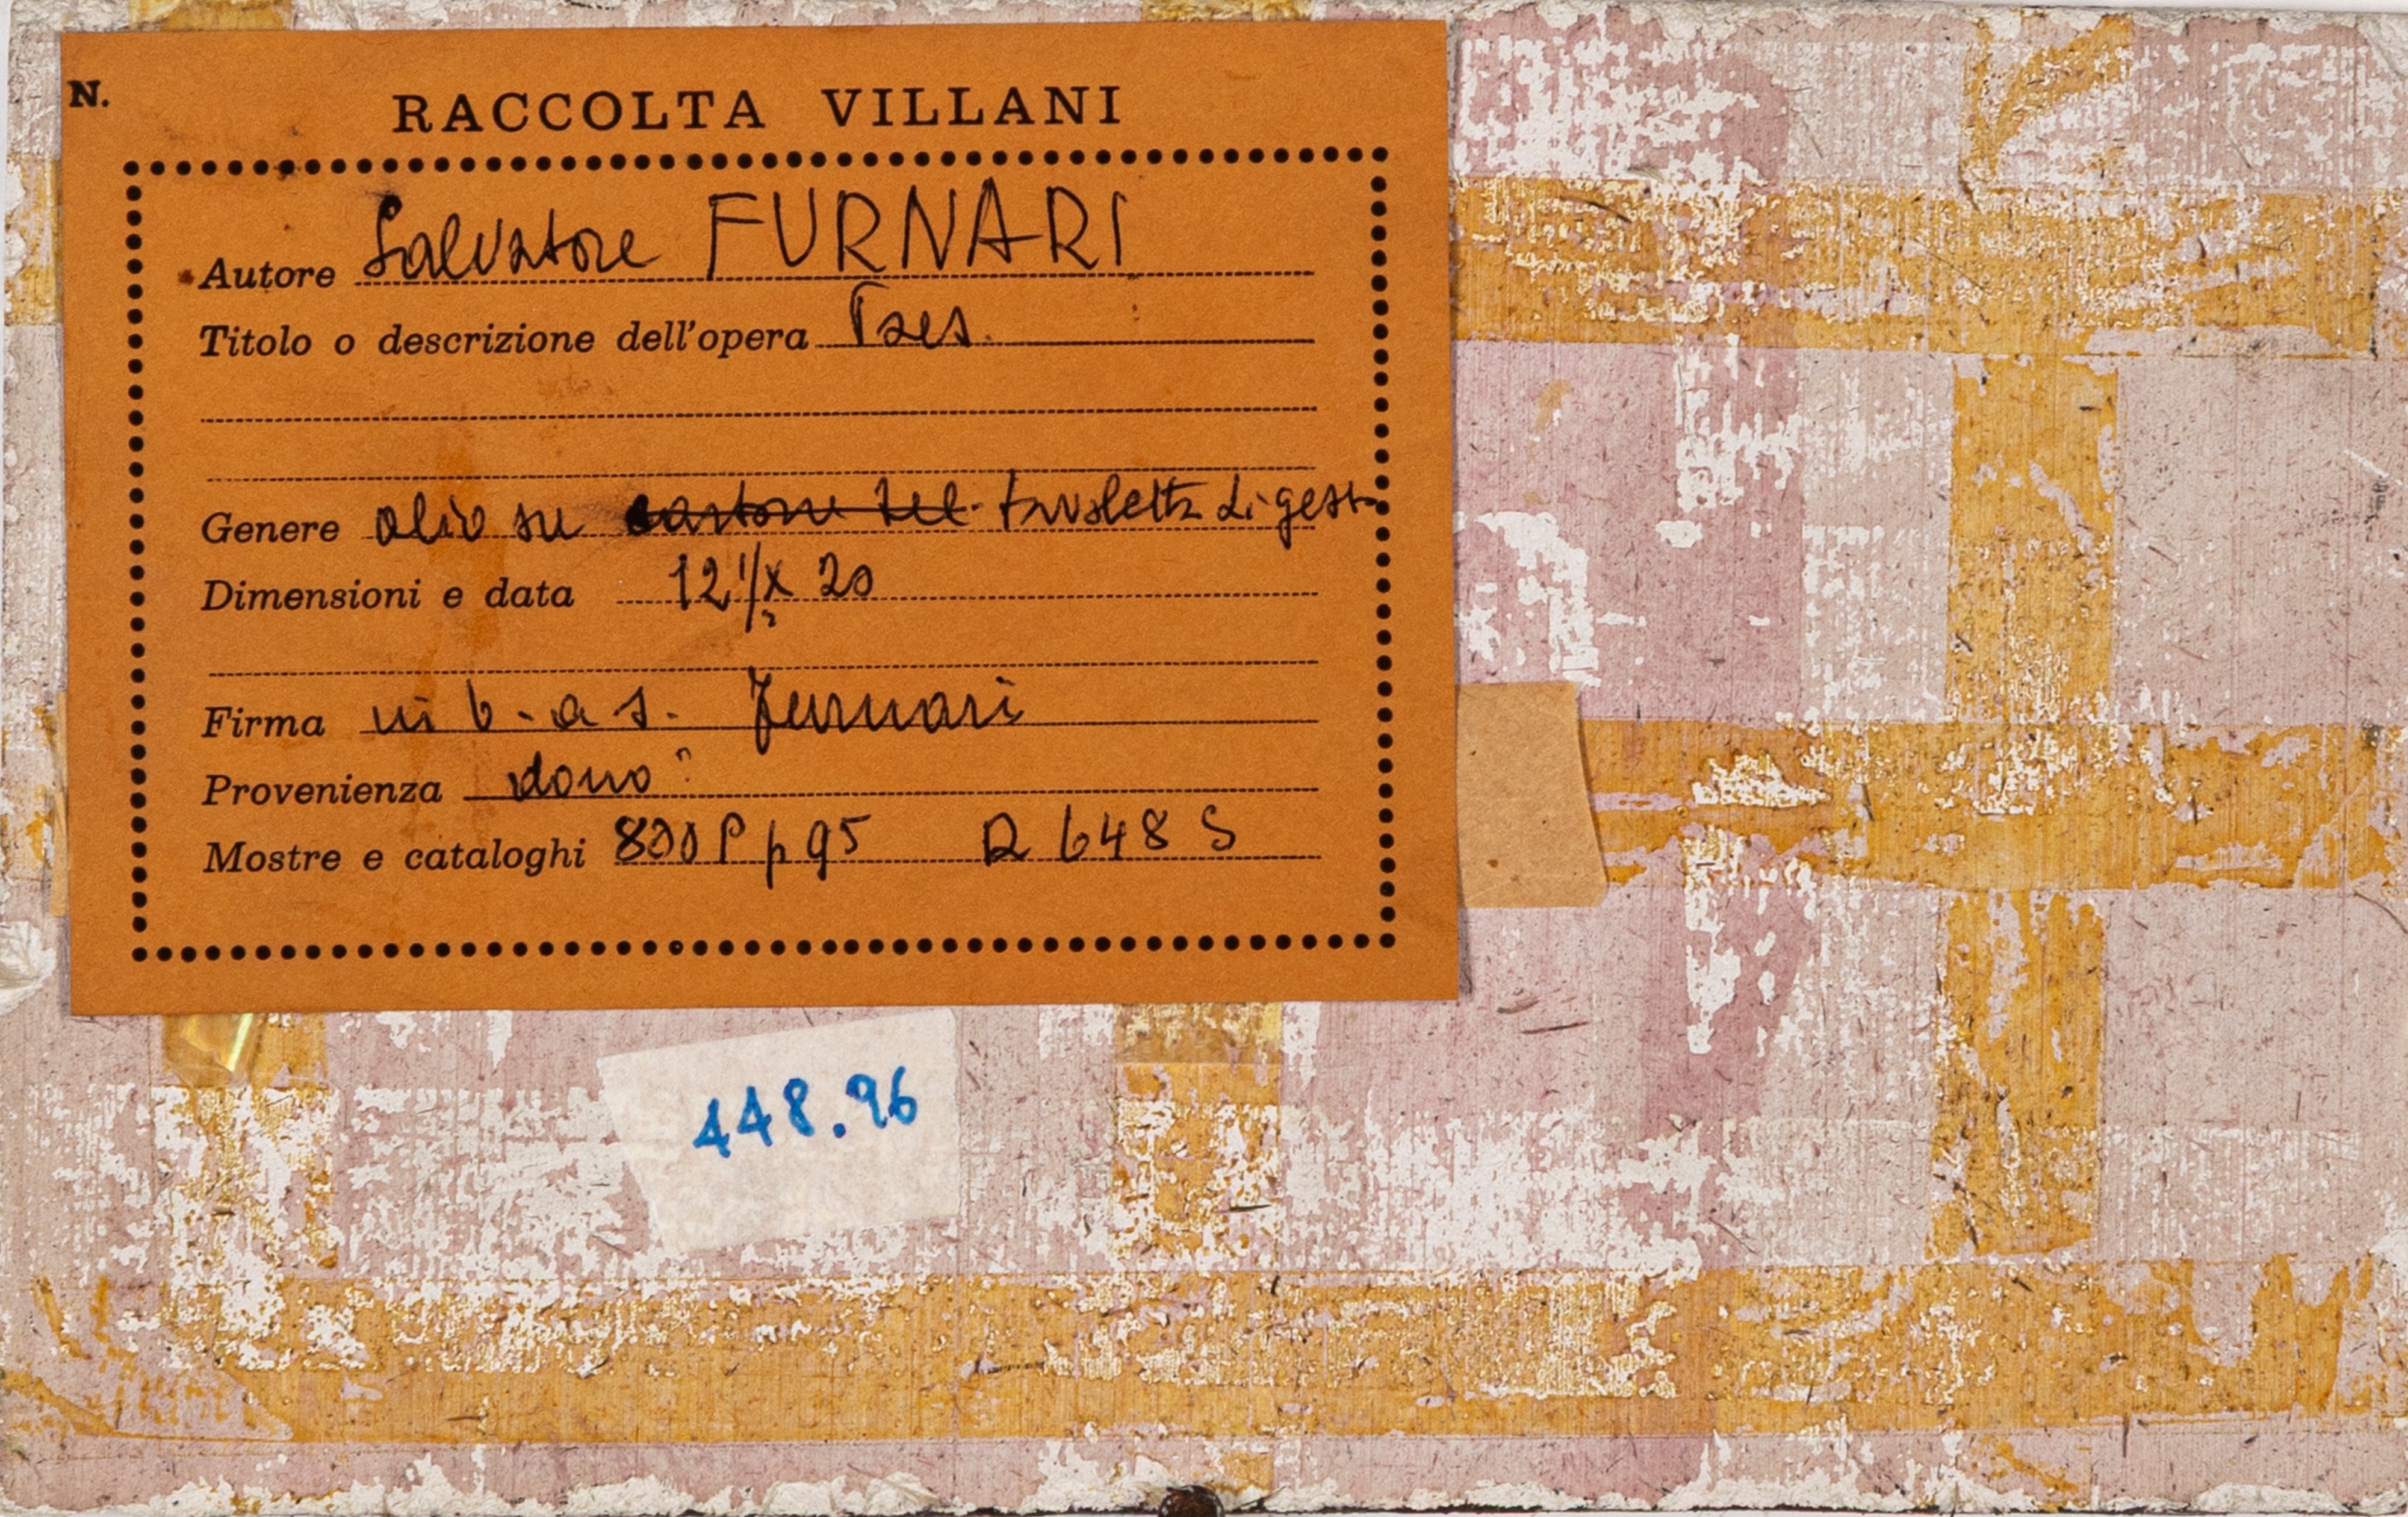 N.
RACCOLTA VILLANI
Autore Salvatore FURNARI
Titolo o descrizione dell'opera Paes.
Genere olio su cartone tel. tavoletta di gesso
Dimensioni e data 12 1/2 x 20
Firma in b. a s. Furnari
Provenienza dono?
Mostre e cataloghi 800 P p 95 R 648 S
448.96